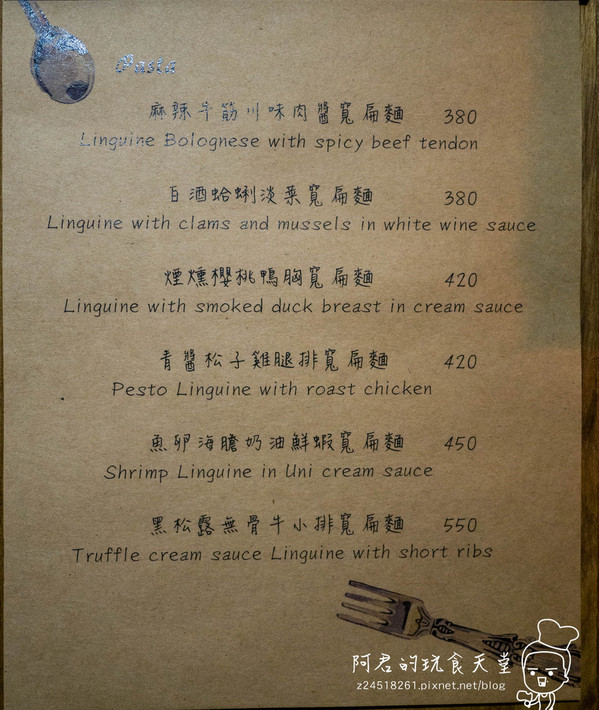 Pasta
麻辣牛筋川味肉醬寬扁麵 380
Linguine Bolognese with spicy beef tendon
白酒蛤蜊淡菜寬扁麵 380
Linguine with clams and mussels in white wine sauce
煙燻櫻桃鴨胸寬扁麵 420
Linguine with smoked duck breast in cream sauce
青醬松子雞腿排寬扁麵 420
Pesto Linguine with roast chicken
魚卵海膽奶油鮮蝦寬扁麵 450
Shrimp Linguine in Uni cream sauce
黑松露無骨牛小排寬扁麵 550
Truffle cream sauce Linguine with short ribs
阿君的玩食天堂
z24518261.pixnet.net/blog